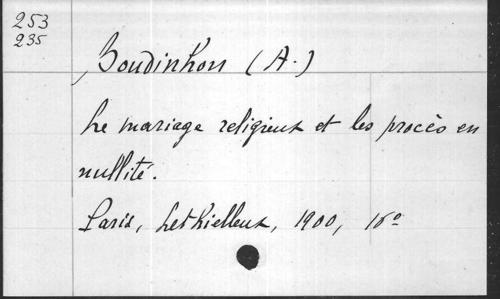 253
235
Boudinhon (A.)
Le mariage religieux et les procès en
nullité.
Paris, Lethielleux, 1900, 16º